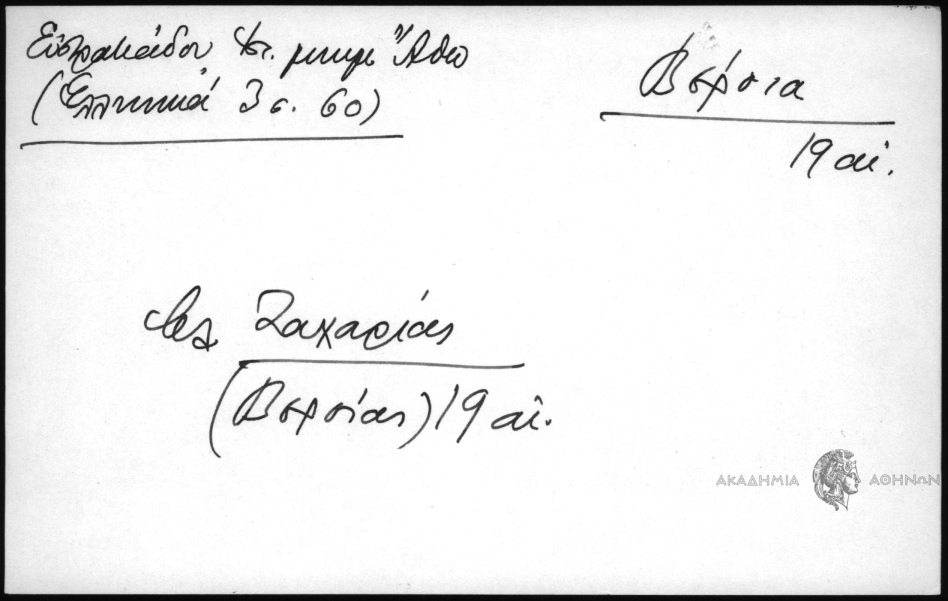 Εὐστρατιάδου Ἱστ. μνημ Ἄθω
(Ἑλληνικά 3 σ. 60)
Βέροια
19 αἰ.
Ζαχαρίας
(Βεροίας) 19 αἰ.
ΑΚΑΔΗΜΙΑ ΑΘΗΝΩΝ